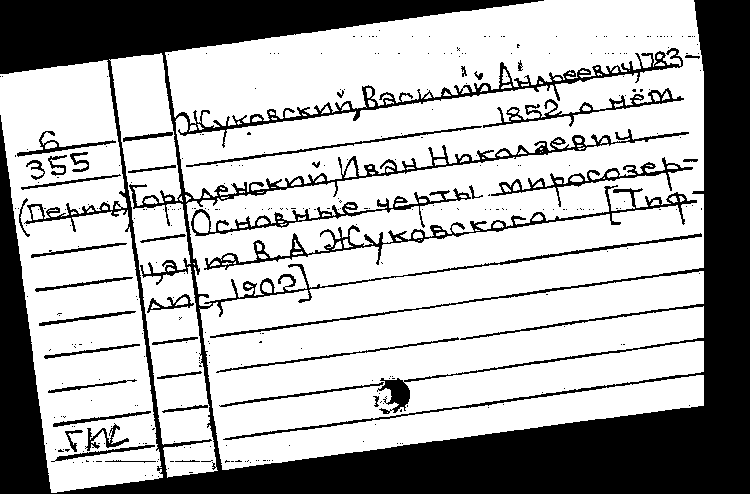 Жуковский, Василий Андреевич, 1783-
1852, о нём.
6
355
(Период) Городенский, Иван Николаевич.
Основные черты миросозер-
цания В. А. Жуковского. [Тиф-
лис, 1902].
ГИС